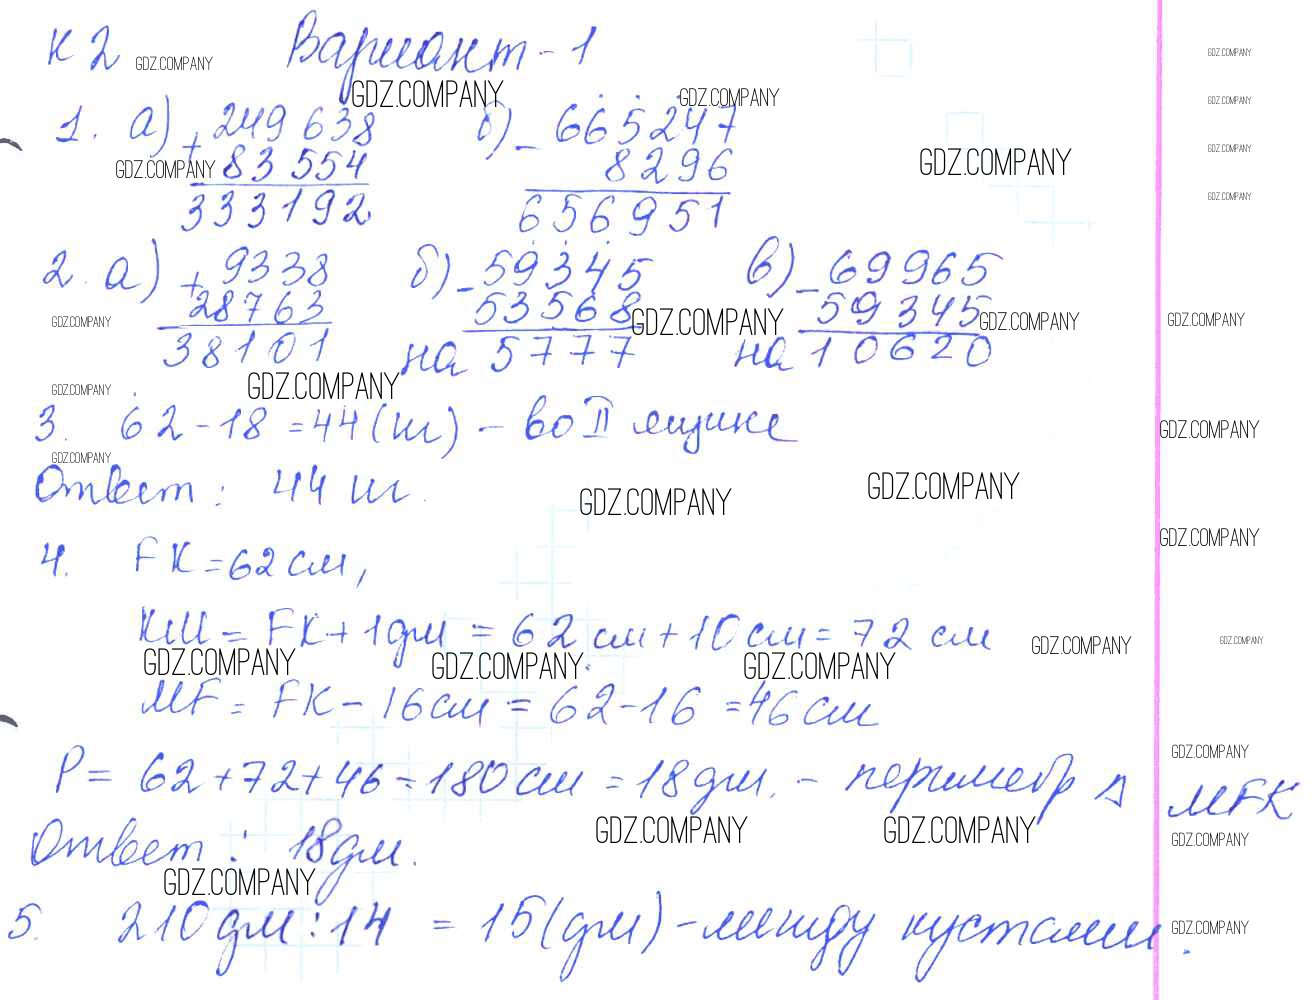 К 2 Вариант - 1
GDZ.COMPANY GDZ.COMPANY
GDZ.COMPANY GDZ.COMPANY
GDZ.COMPANY
1. а) + 249 638 б) - 665247
83 554 8296
GDZ.COMPANY GDZ.COMPANY GDZ.COMPANY
333192 656951
GDZ.COMPANY
2. а) + 9338 б) - 59345 в) - 69965
28763 53568 59345
GDZ.COMPANY GDZ.COMPANY GDZ.COMPANY GDZ.COMPANY
38101 на 5777 на 10620
GDZ.COMPANY GDZ.COMPANY
3. 62 - 18 = 44 (ш) - во II ящике
GDZ.COMPANY
GDZ.COMPANY
Ответ: 44 ш.
GDZ.COMPANY GDZ.COMPANY
GDZ.COMPANY
4. FK = 62 см,
KM = FK + 1дм = 62 см + 10 см = 72 см
GDZ.COMPANY GDZ.COMPANY
GDZ.COMPANY GDZ.COMPANY GDZ.COMPANY
MF = FK - 16см = 62 - 16 = 46 см
GDZ.COMPANY
P = 62 + 72 + 46 = 180 см = 18 дм. - периметр Δ MFK
GDZ.COMPANY GDZ.COMPANY GDZ.COMPANY
Ответ: 18дм.
GDZ.COMPANY
5. 210 дм : 14 = 15 (дм) - между кустами.
GDZ.COMPANY